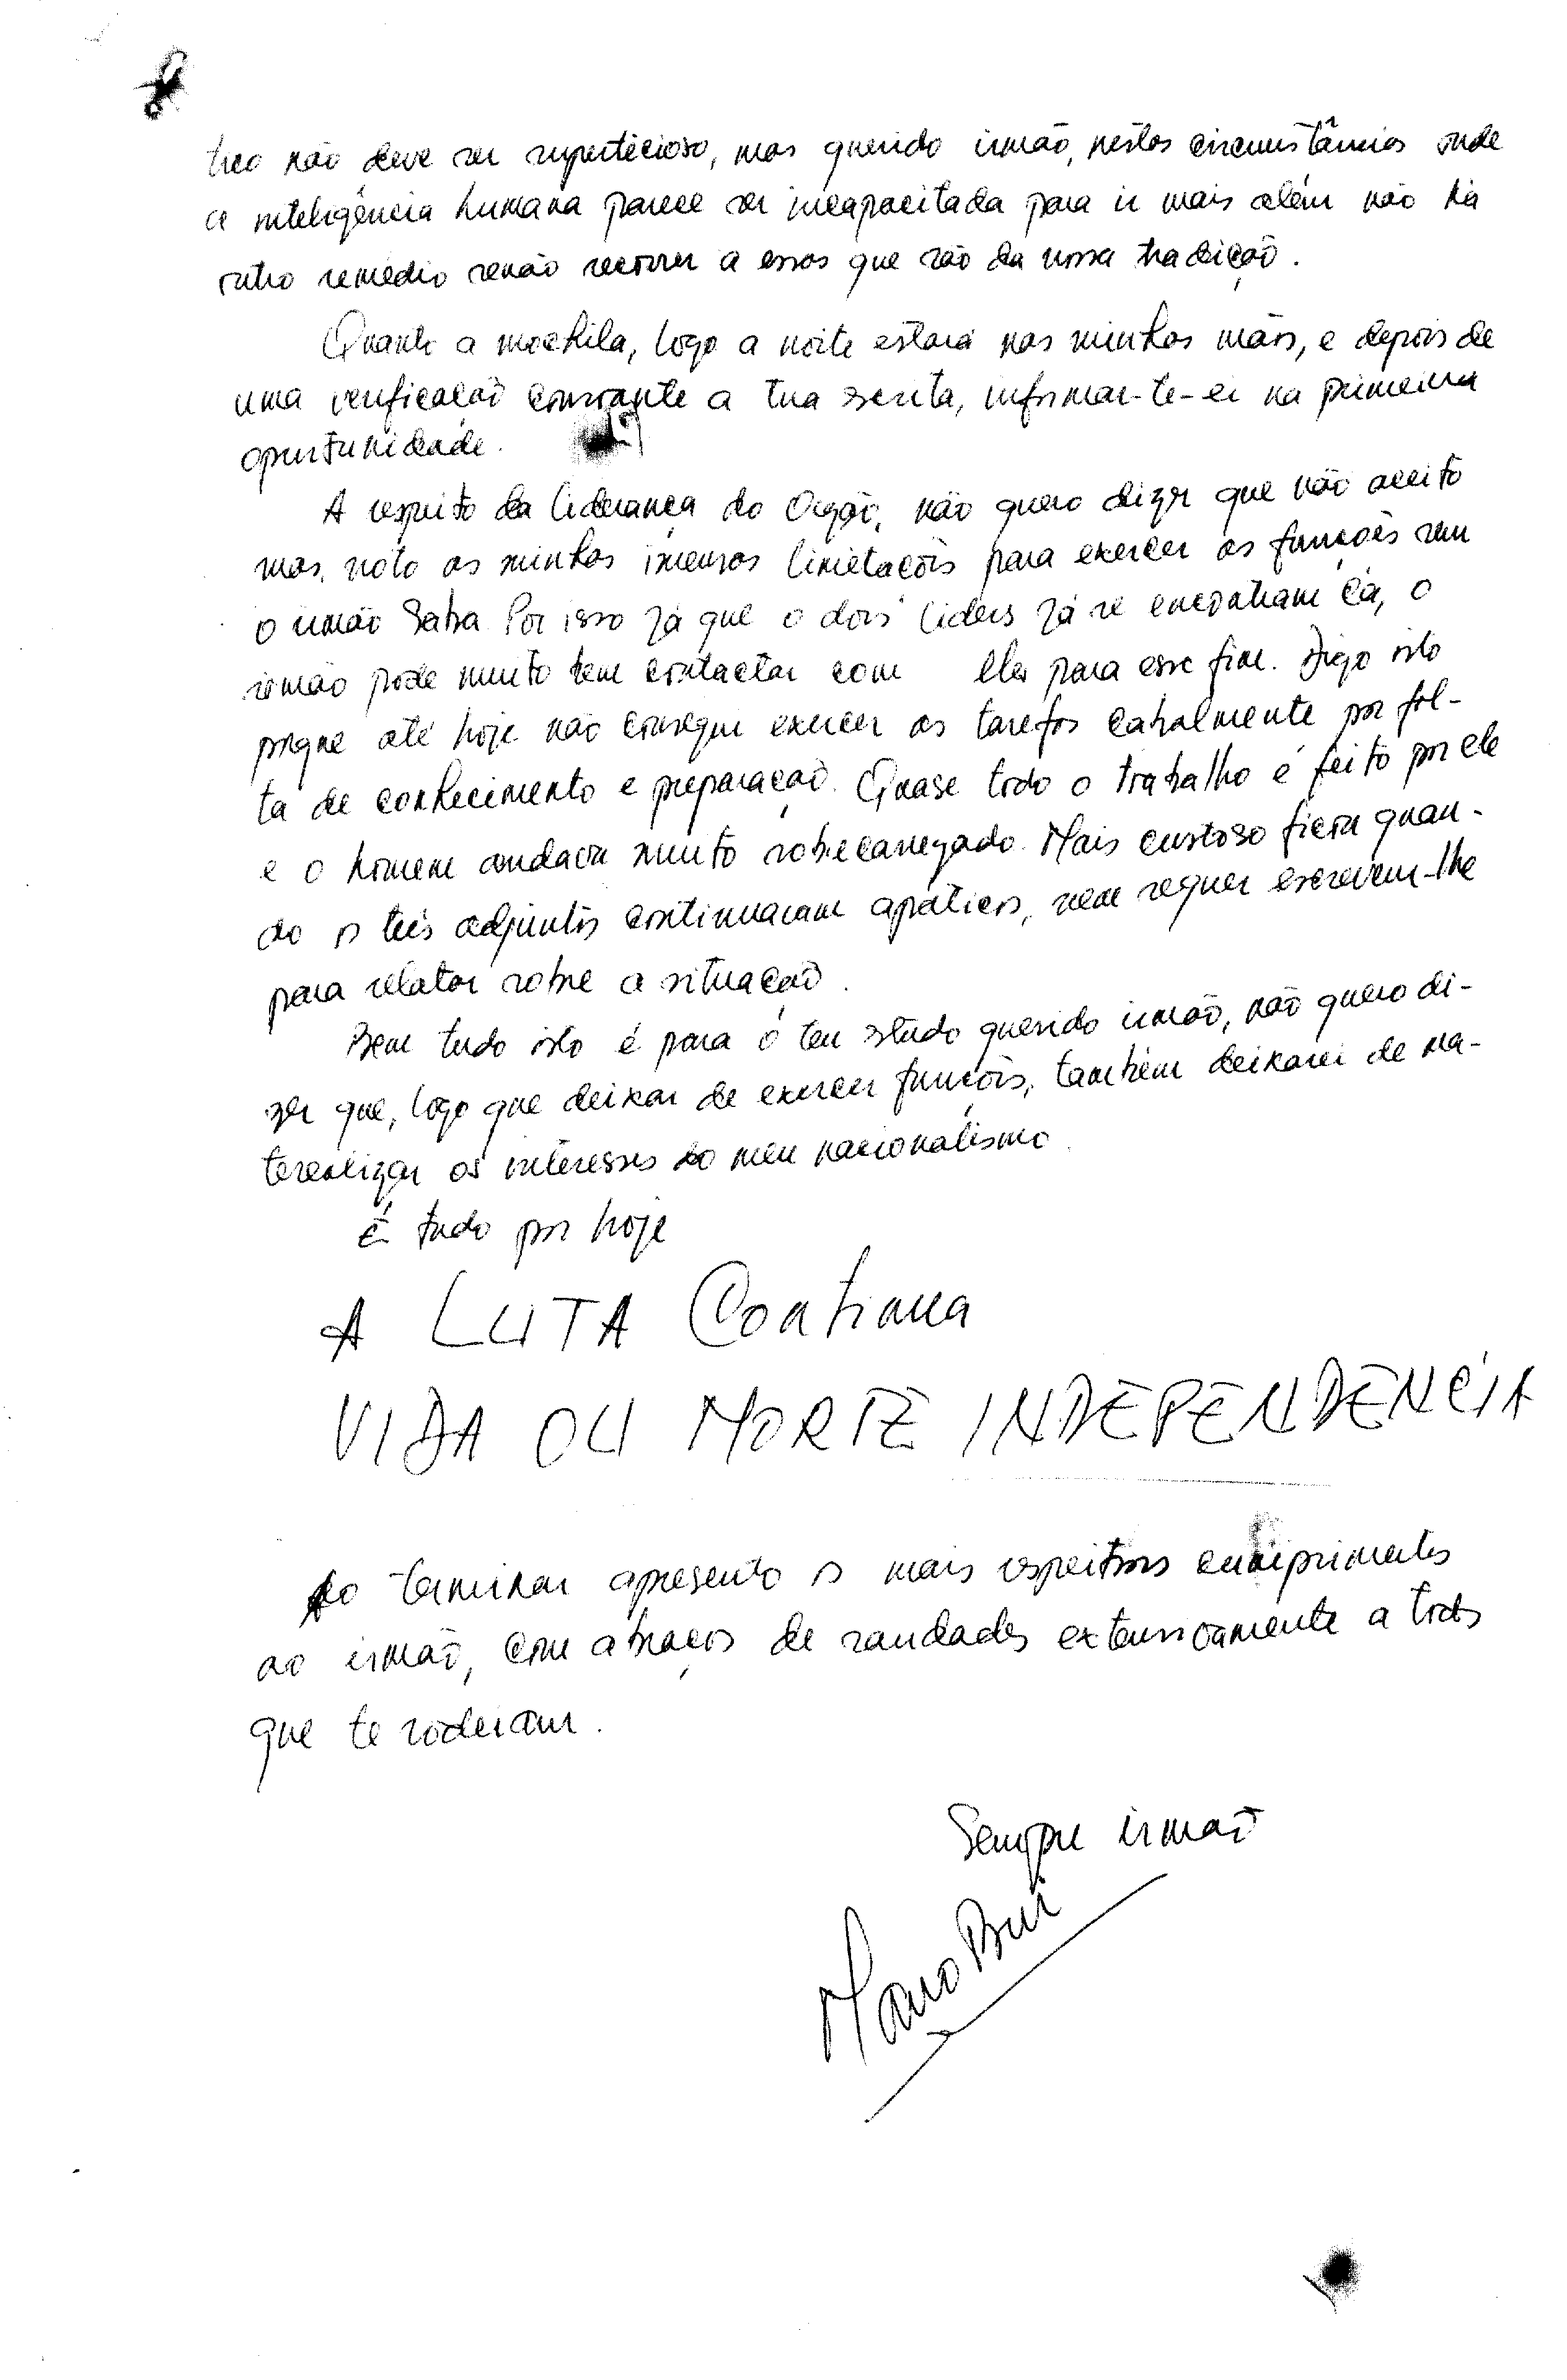 tico não deve ser supertecioso, mas querido irmão, nestas circunstâncias onde
a inteligência humana parece ser incapacitada para ir mais além não há
outro remédio senão recorrer a essas que são da nossa tradição.
Quanto a mochila, logo a noite estará nas minhas mãos, e depois de
uma verificação consoante a tua escrita, informar-te-ei na primeira
oportunidade.
A respeito da liderança do Orgão, não quero dizer que não aceito
mas, noto as minhas imensas limitações para exercer as funções sem
o irmão Saba. Por isso já que o dois líders já se encontram cá, o
irmão pode muito bem contactar com eles para esse fim. Digo isto
porque até hoje não consegui exercer as tarefas cabalmente por fal-
ta de conhecimento e preparação. Quase todo o trabalho é feito por ele
e o homem andava muito sobrecarregado. Mais custoso ficou quan-
do os três adjuntos continuaram apáticos, nem sequer escrevem-lhe
para relatar sobre a situação.
Bem tudo isto é para o teu estudo querido irmão, não quero di-
zer que, logo que deixar de exercer funções, também deixarei de ma-
terealizar os interesses do meu nacionalismo.
É tudo por hoje
A LUTA Continua
VIDA OU MORTE INDEPENDÊNCIA
Ao terminar apresento os mais respeitosos cumprimentos
ao irmão, com abraços de saudades extensivamente a todos
que te rodeiam.
Sempre irmão
Mauo Bui